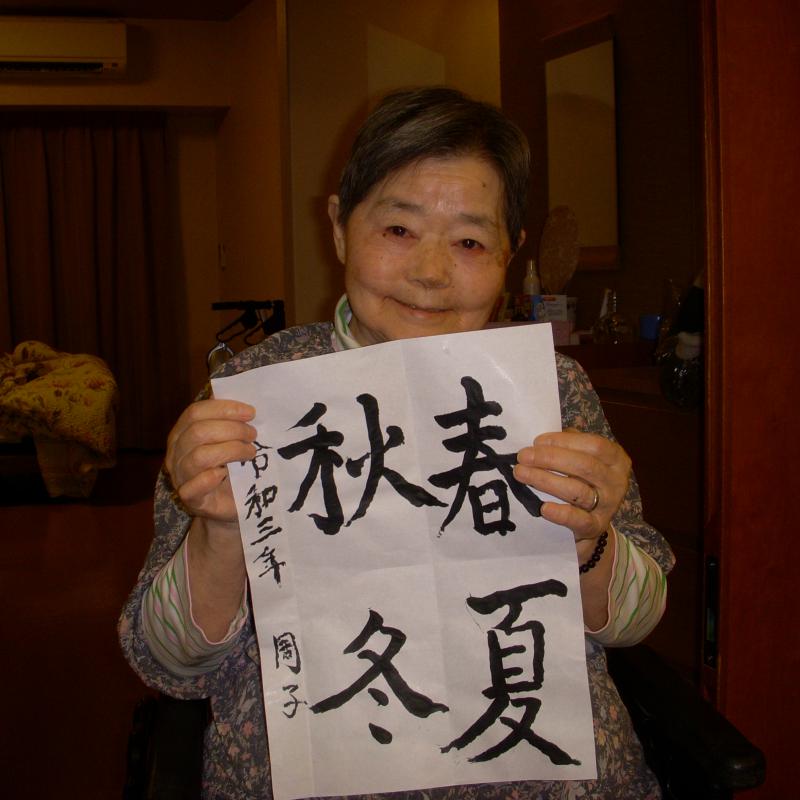 春夏
秋冬
令和三年 周子